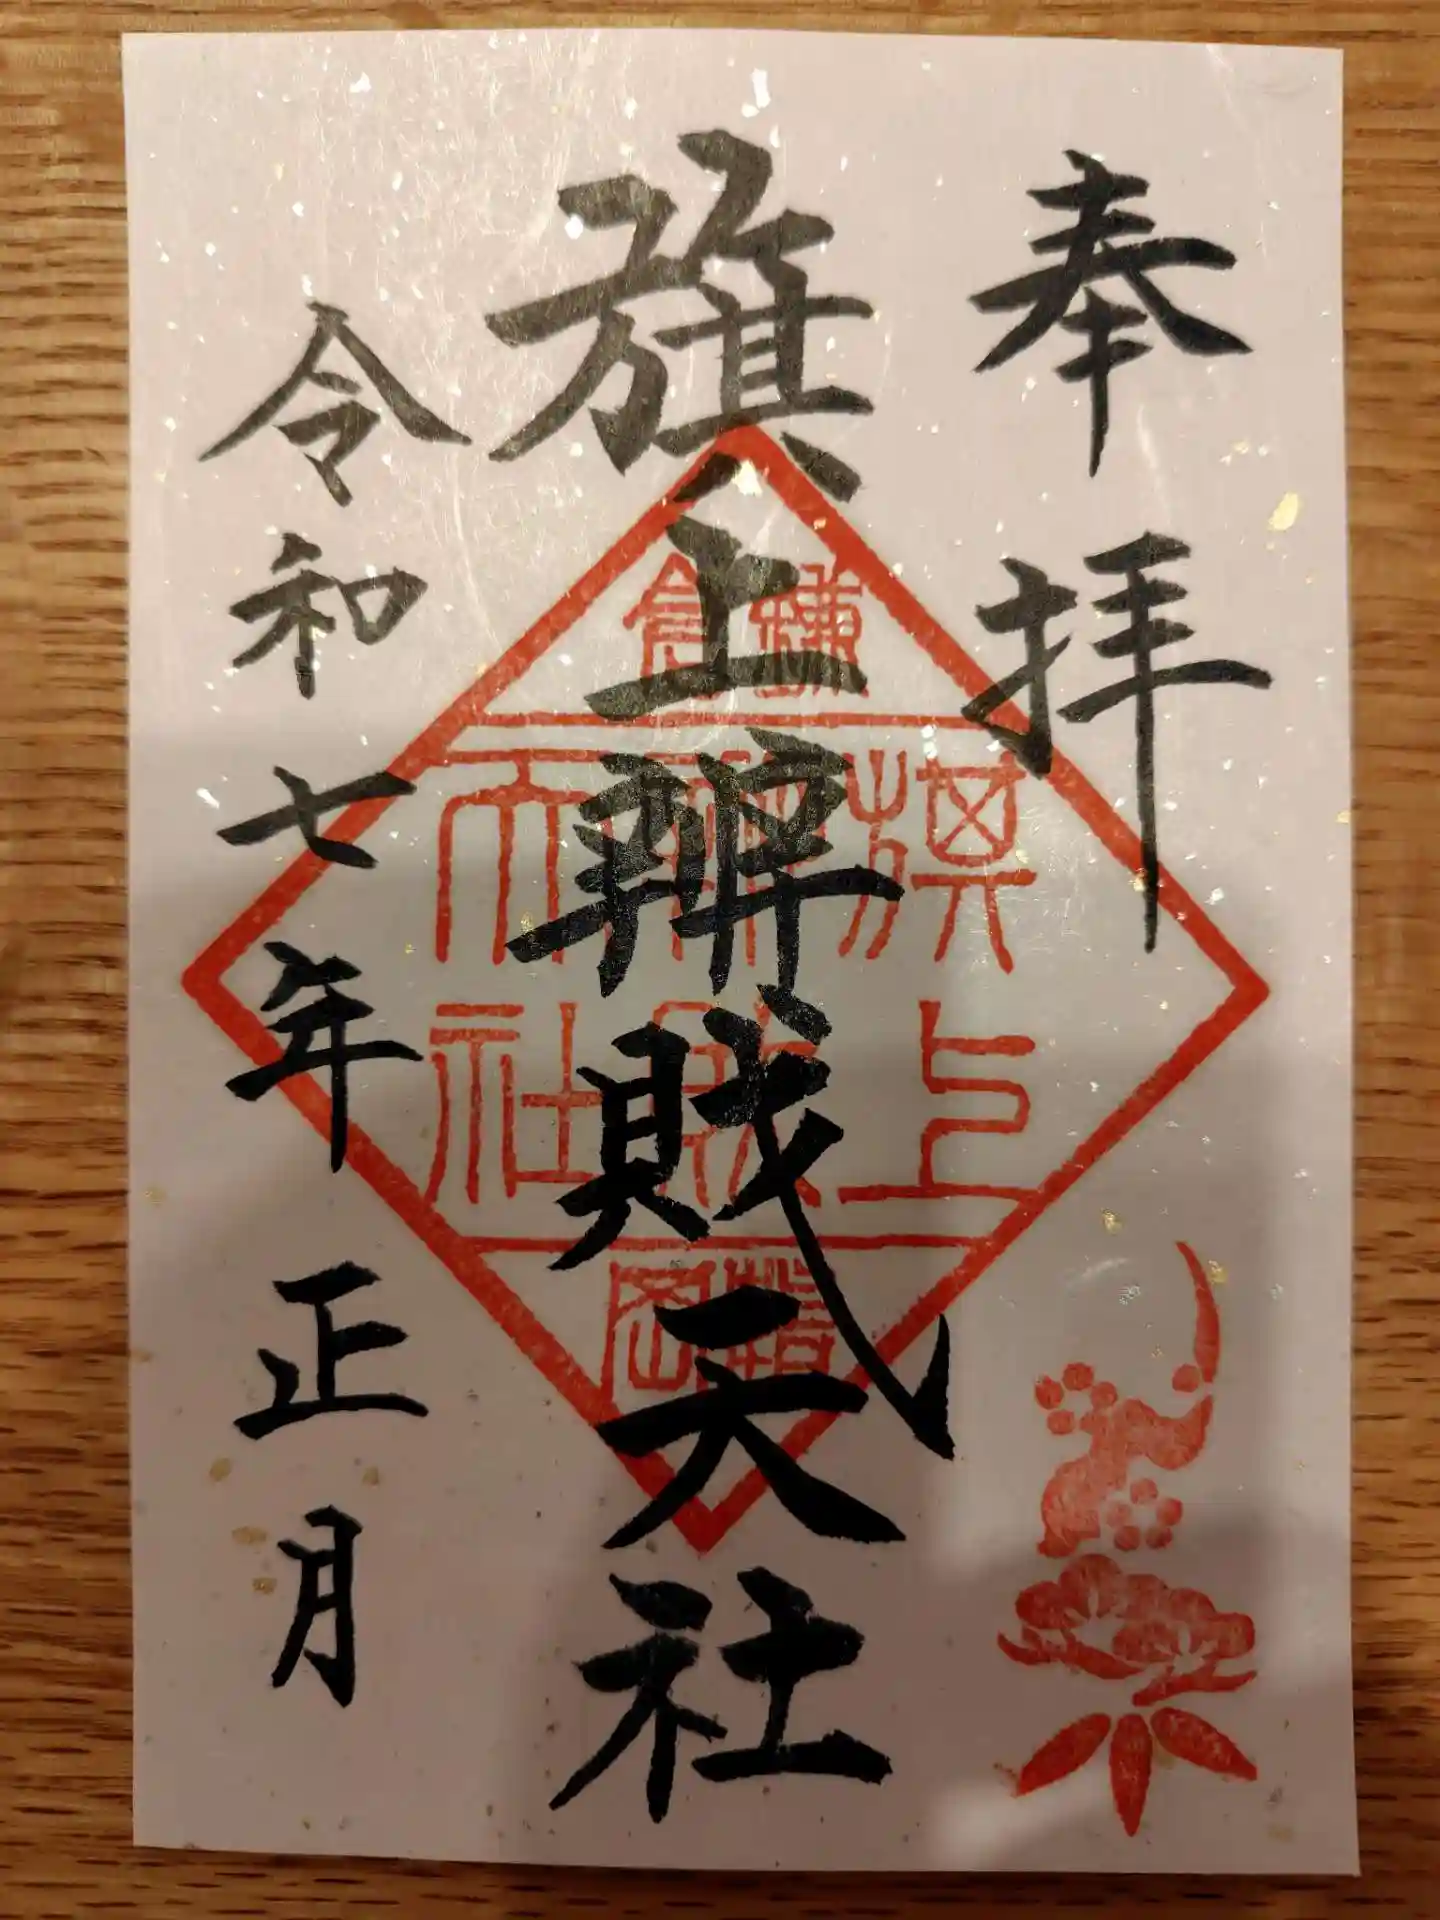 奉拝
旗上辨財天社
令和七年正月
鎌倉
旗上
辨財
天社
鶴岡